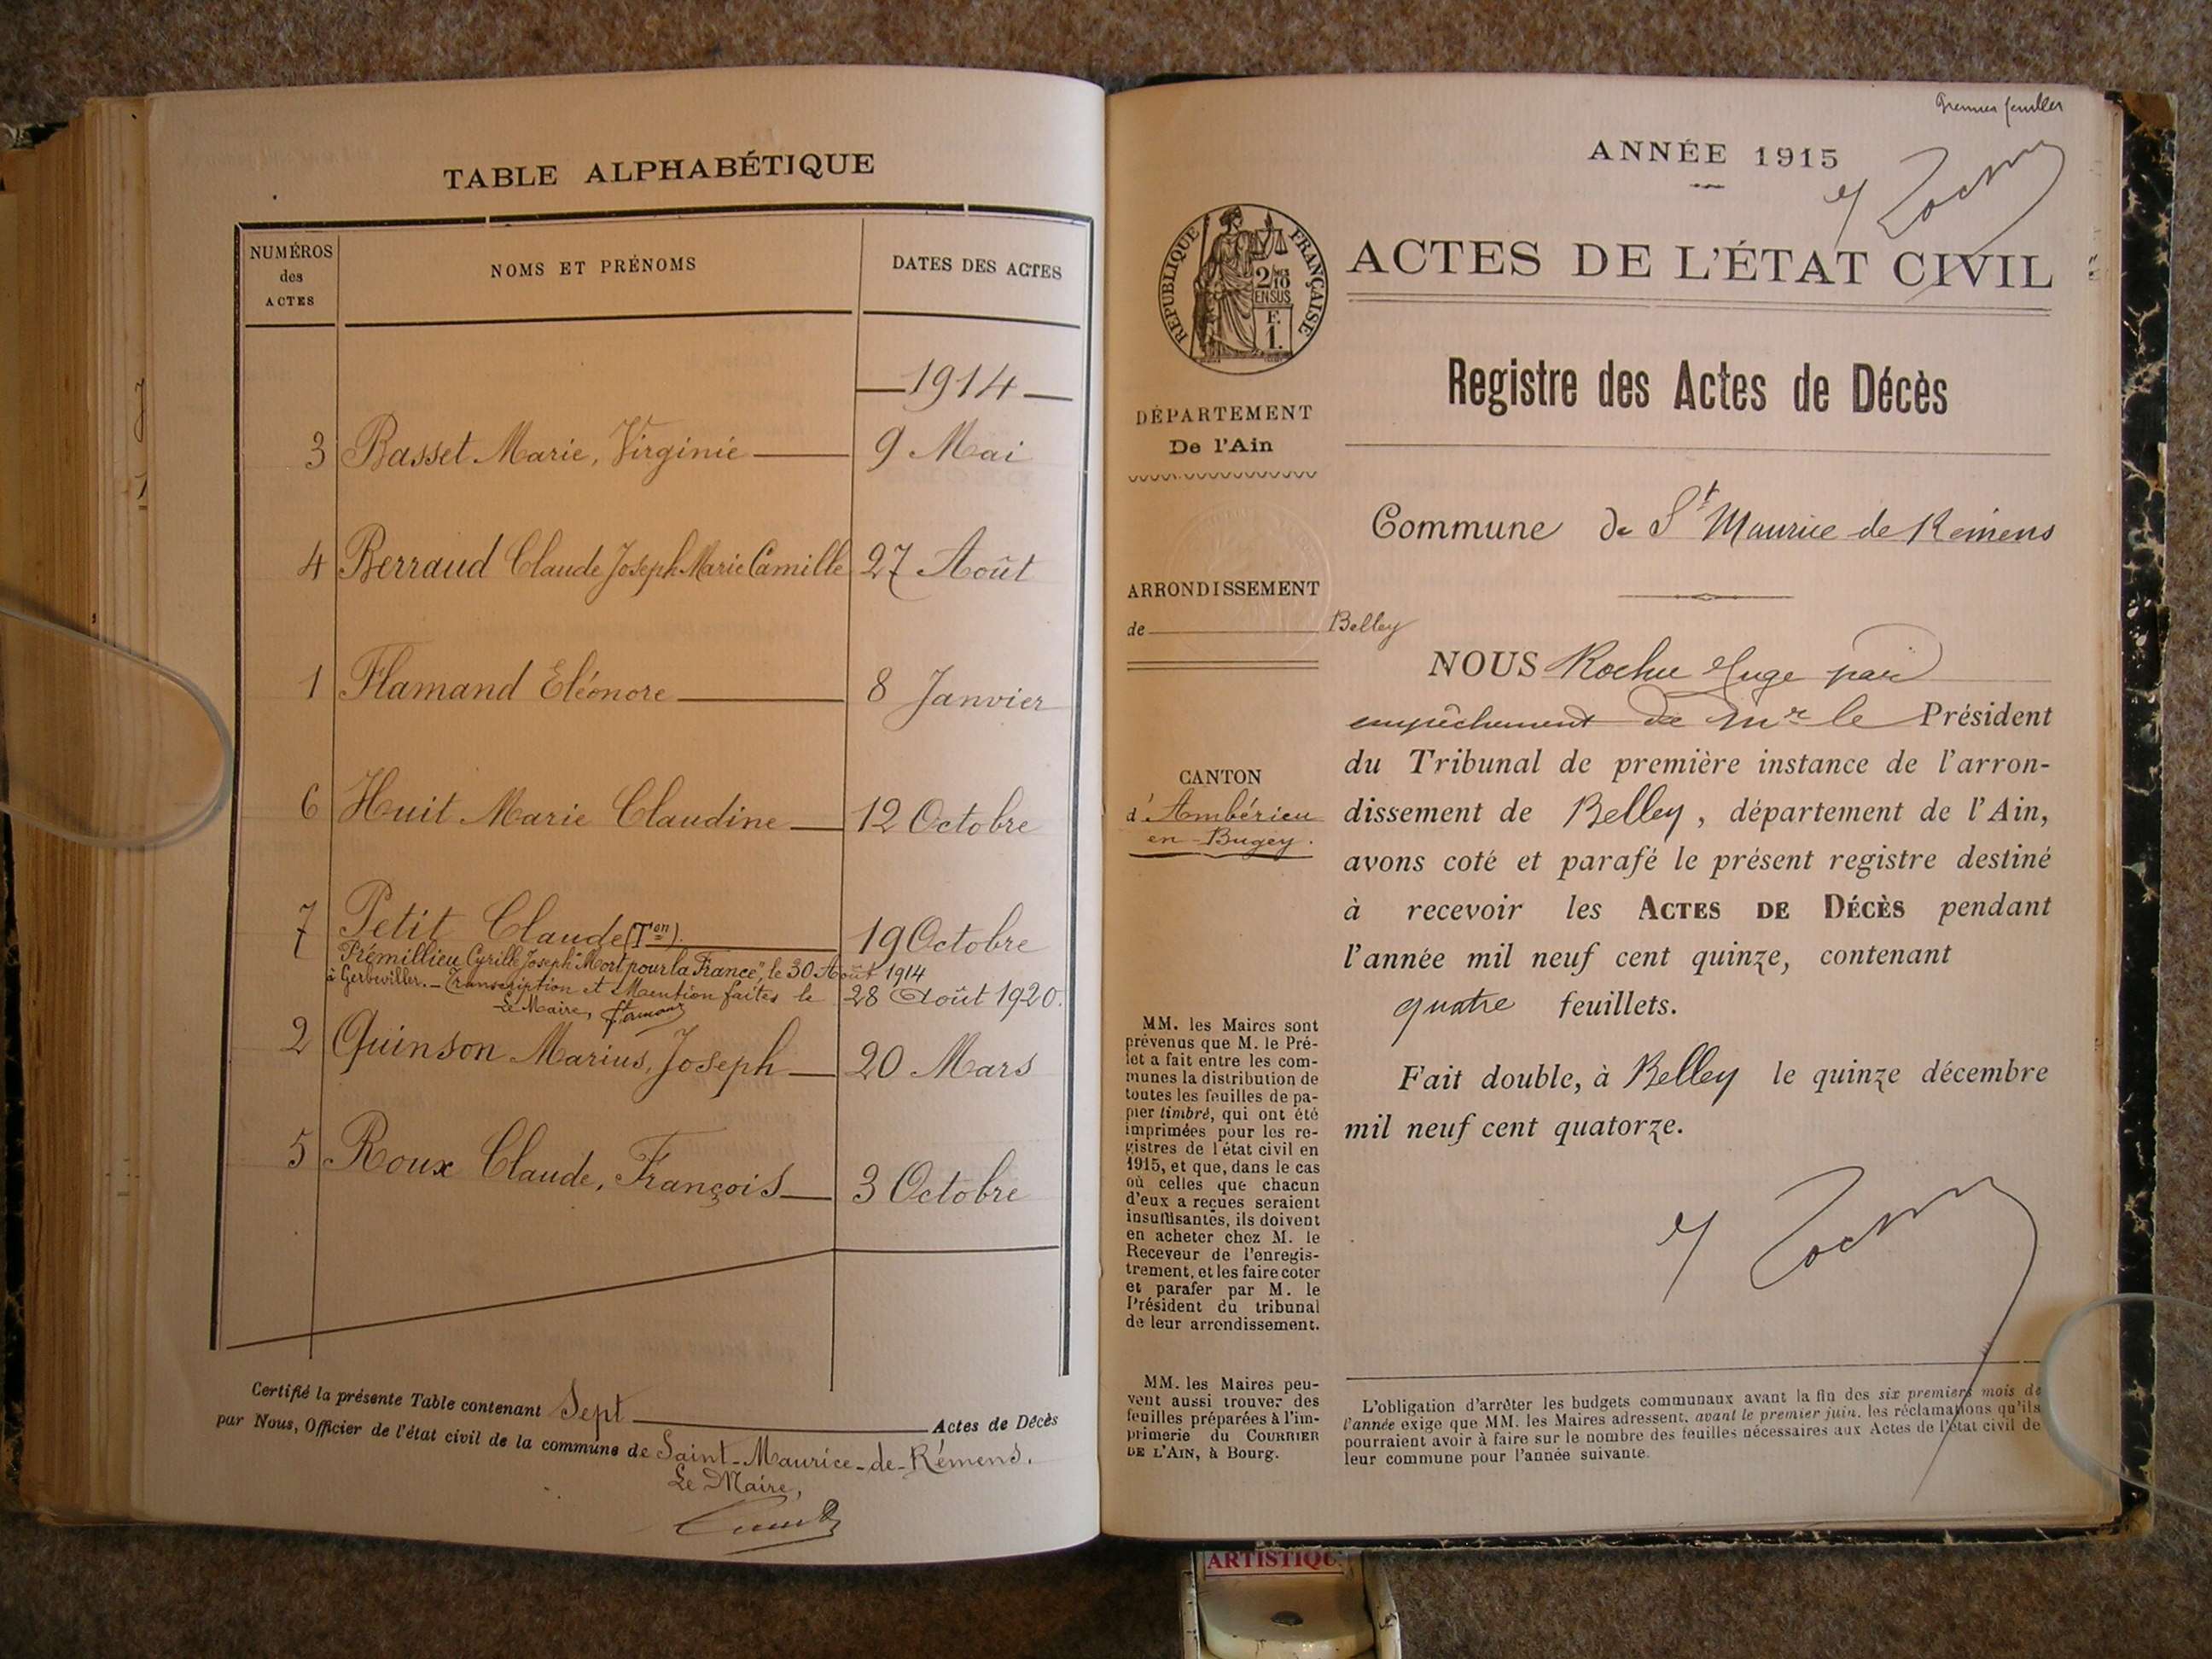 TABLE ALPHABÉTIQUE
NUMÉROS
des
ACTES
NOMS ET PRÉNOMS
DATES DES ACTES
—1914—
3 Basset Marie, Virginie — 9 Mai
4 Berraud Claude Joseph Marie Camille 27 Août
1 Flamand Eléonore — 8 Janvier
6 Huit Marie Claudine — 12 Octobre
7 Petit Claude (Ton). 19 Octobre
Prémillieu Cyrille Joseph "Mort pour la France", le 30 Août 1914
à Gerbéviller. — Transcription et Mention faites le 28 Août 1920.
Le Maire,
2 Quinson Marius, Joseph — 20 Mars
5 Roux Claude, François — 3 Octobre
Certifié la présente Table contenant Sept — Actes de Décès
par Nous, Officier de l'état civil de la commune de Saint-Maurice-de-Rémens.
Le Maire,
Premier feuillet
ANNÉE 1915
RÉPUBLIQUE FRANÇAISE
2/10
EN SUS
F.
1.
ACTES DE L'ÉTAT CIVIL
Registre des Actes de Décès
DÉPARTEMENT
De l'Ain
Commune de St Maurice de Rémens
ARRONDISSEMENT
de Belley
CANTON
d'Ambérieu
en-Bugey.
NOUS Juge par
empêchement de Mr le Président
du Tribunal de première instance de l'arron-
dissement de Belley, département de l'Ain,
avons coté et parafé le présent registre destiné
à recevoir les ACTES DE DÉCÈS pendant
l'année mil neuf cent quinze, contenant
quatre feuillets.
Fait double, à Belley le quinze décembre
mil neuf cent quatorze.
MM. les Maires sont
prévenus que M. le Pré-
fet a fait entre les com-
munes la distribution de
toutes les feuilles de pa-
pier timbré, qui ont été
imprimées pour les re-
gistres de l'état civil en
1915, et que, dans le cas
où celles que chacun
d'eux a reçues seraient
insuffisantes, ils doivent
en acheter chez M. le
Receveur de l'enregis-
trement, et les faire coter
et parafer par M. le
Président du tribunal
de leur arrondissement.
MM. les Maires peu-
vent aussi trouver des
feuilles préparées à l'im-
primerie du COURRIER
DE L'AIN, à Bourg.
L'obligation d'arrêter les budgets communaux avant la fin des six premiers mois de
l'année exige que MM. les Maires adressent, avant le premier juin, les réclamations qu'ils
pourraient avoir à faire sur le nombre des feuilles nécessaires aux Actes de l'état civil de
leur commune pour l'année suivante.
ARTISTIQU